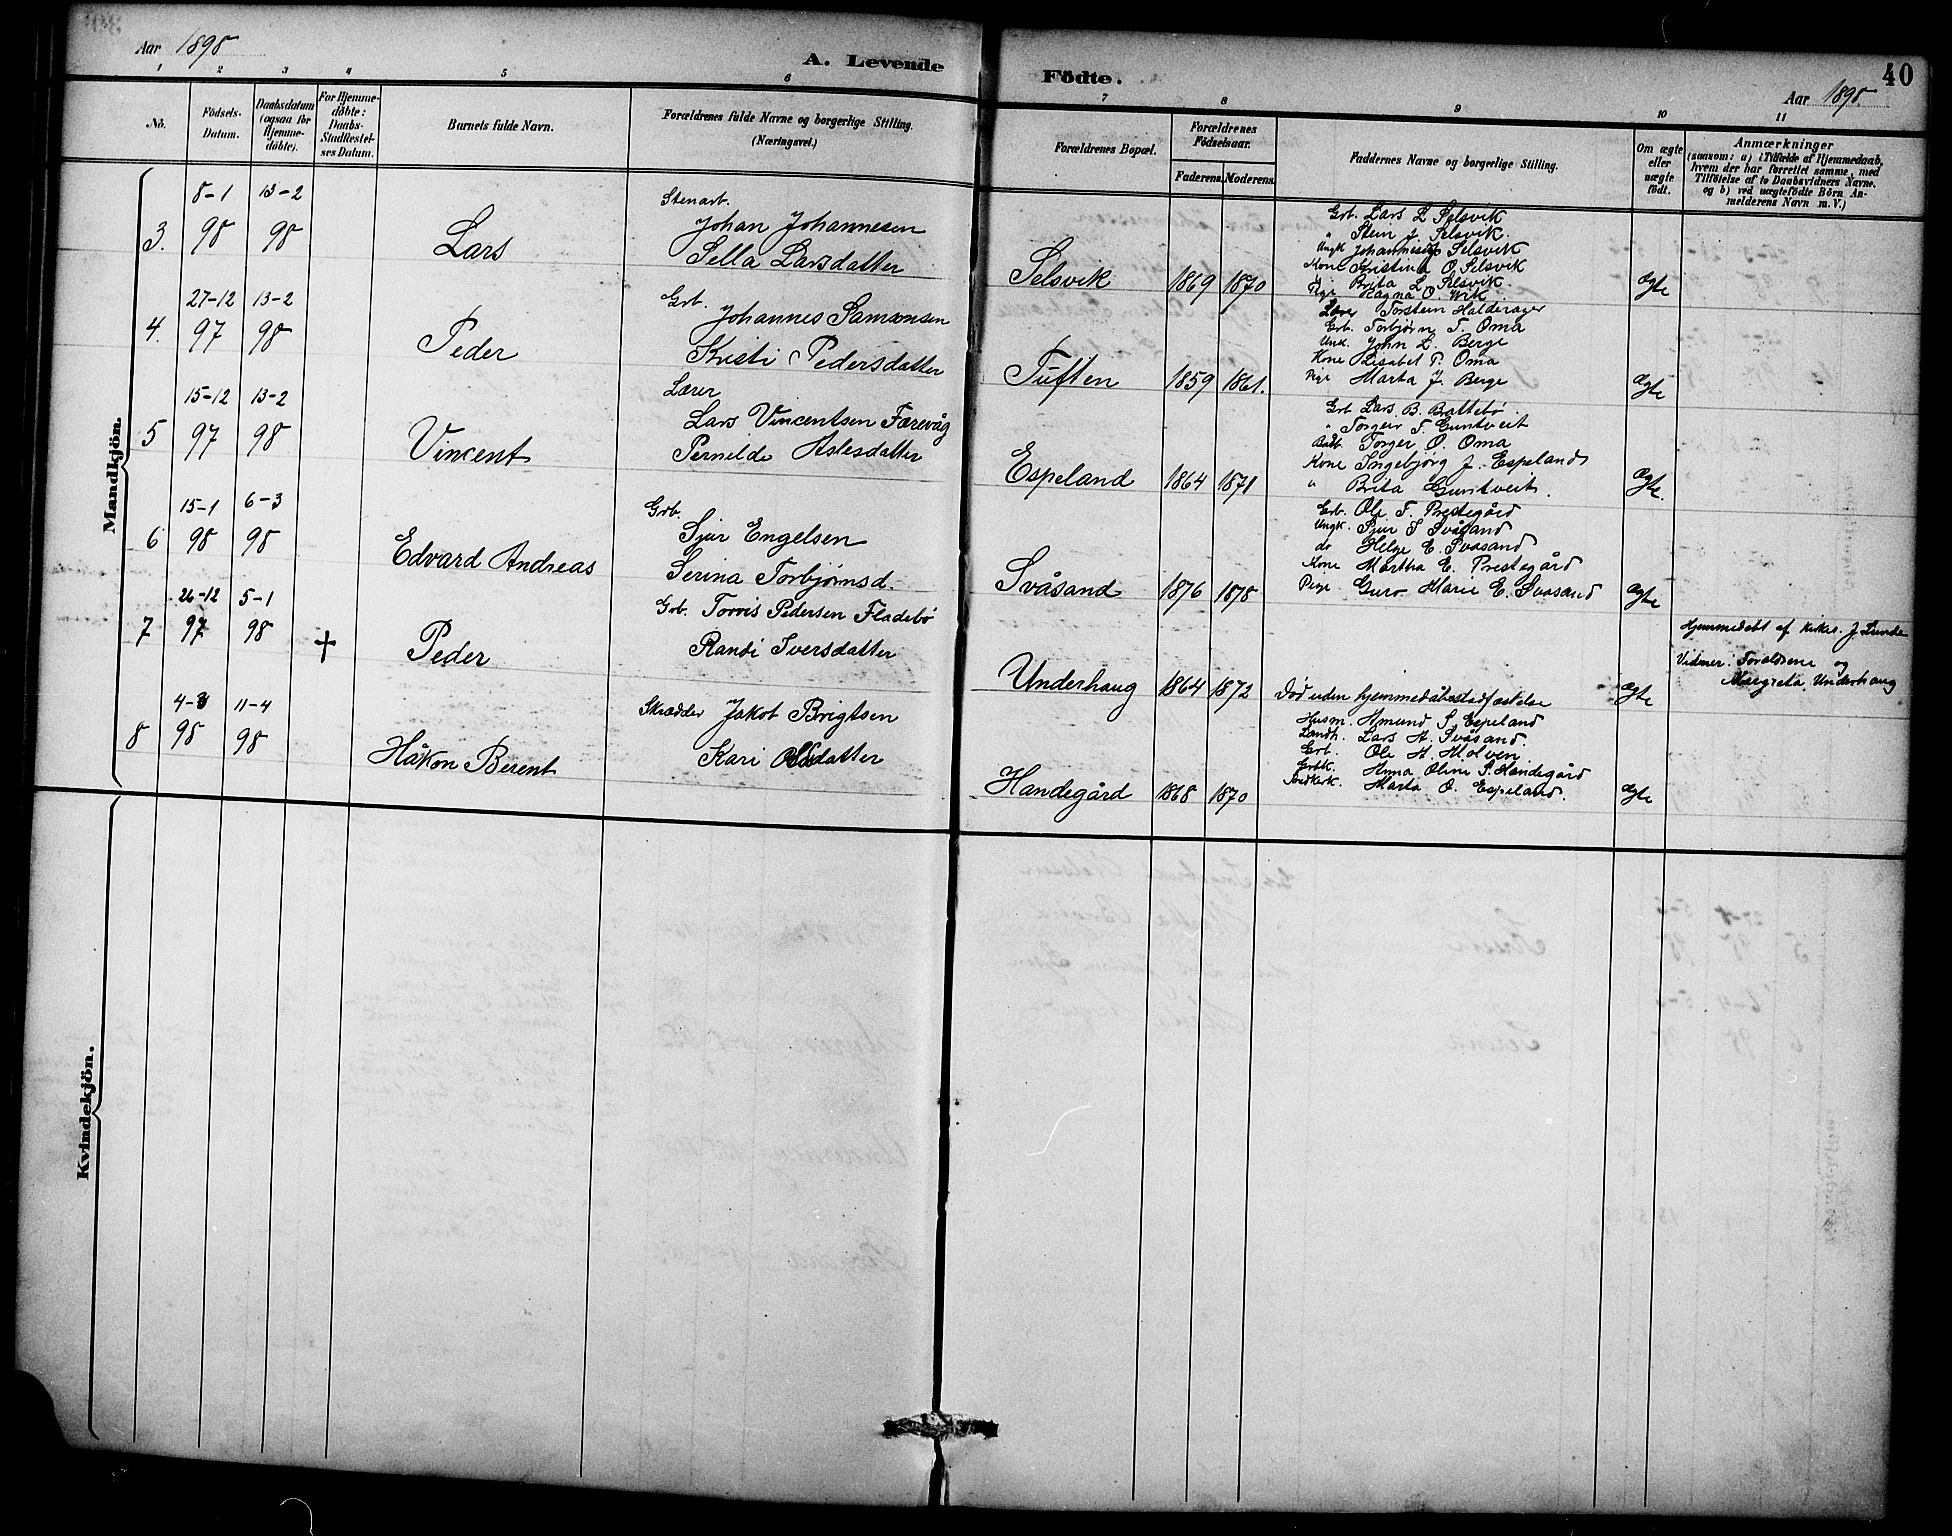 Aar 1898
A. Levende
Födte.
Aar 1898
40
1 2 3 4 5 6 7 8 9 10 11
No.
Födsels-
Datum.
Daabsdatum
(ogsaa for
Hjemme-
döbte).
For Hjemme-
döbte:
Daabs-
Stadfæstel-
ses Datum.
Barnets fulde Navn.
Forældrenes fulde Navne og borgerlige Stilling.
(Næringsvei.)
Forældrenes Bopæl.
Forældrenes
Födselsaar.
Faderens. Moderens.
Faddernes Navne og borgerlige Stilling.
Om ægte
eller
uægte
födt.
Anmærkninger
(saasom: a) i Tilfælde af Hjemmedaab,
hvem der har forrettet samme, med
Tilföielse af to Daabsvidners Navne,
og b) ved uægtefödte Börn An-
melderens Navn m. V.)
Mandkjön.
3. 8-1 98 13-2 98
Lars
Stenarb.
Johan Johannesen
Sella Larsdatter
Selsvik 1869 1870
Grb. Lars L Selsvik
" Stein J. Selsvik.
Ungk Johannes Selsvik
Kone Kristina O. Selsvik
Pige Brita L Selsvik.
Pige Ragna O. Wik.
Ægte
4. 27-12 97 13-2 98
Peder
Grb.
Johannes Samsonsen
Kristi Pedersdatter
Tuften 1859 1861.
Lærer Torstein Halderager
Grb. Torbjørn T. Oma
Unk. John L. Berge
Kone Lisabet P. Oma
Pige Marta J. Berge
Ægte
5 15-12 97 13-2 98
Vincent
Lærer
Lars Vincentsen Færevåg
Pernilde Aslesdatter
Espeland 1864 1871
Grb Lars B. Battebø
" Torgeir T. Guntveit
Torger O. Oma
Kone Ingebjørg J. Espeland
" Brita Guntveit.
Ægte.
6 15-1 98 6-3 98
Edvard Andreas
Grb.
Sjur Engelsen
Serina Torbjørnsd.
Svåsand 1876 1878
Grb. Ole T. Prestegård
Ungk. Sjur S Svåsand
do Helge E. Svåsand
Kone Martha E. Prestegård
Pige Guro Marie E. Svåsand
Ægte
7 26-12 97 5-1 98 +
Peder
Grb. Torvis Pedersen Fladebø
Randi Iversdatter
Underhaug 1864 1872
Død uden hjemmedåbsstadfæstelse
Ægte
Hjemmedøbt af Kirkes. J Lunde
Vidner: Forældrene og
Margreta Underhaug
8 4-3 98 11-4 98
Håkon Berent
Skrædder Jakob Brigtsen
Kari Olsdatter
Handegård 1868 1870
Husm. Amund S. Espeland
Landh. Lars A. Svåsand.
Grb. Ole A. Molven
Grbk. Anna Oline S. Handegård
Marta O. Espeland.
Ægte
Kvindekjön.